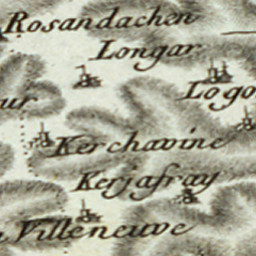 Rosandachen
Longar
Logo
ur
Kerchavine
Kerjafray
Villeneuve